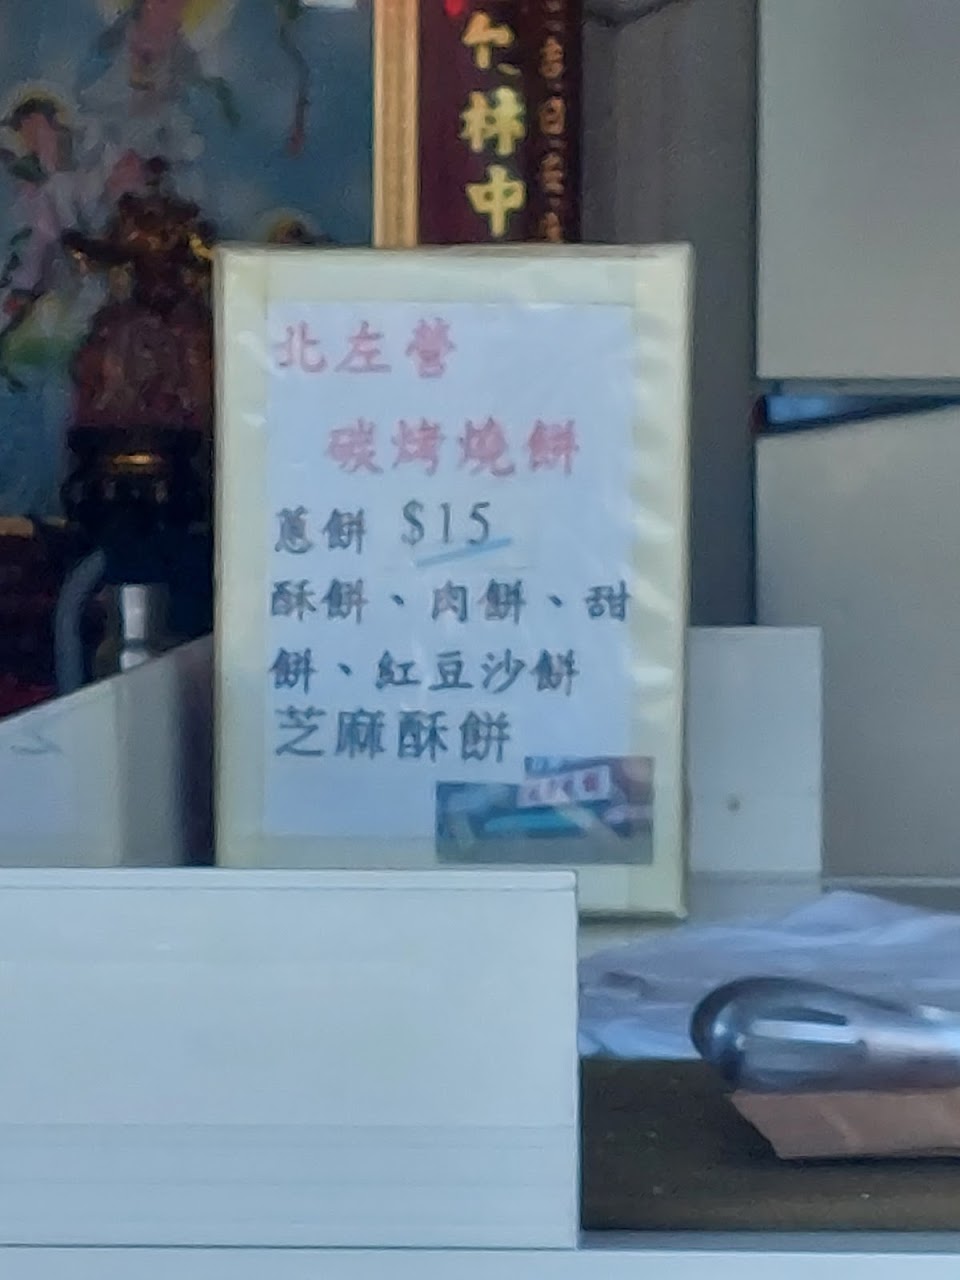 北左營
碳烤燒餅
蔥餅 $15
酥餅、肉餅、甜
餅、紅豆沙餅
芝麻酥餅